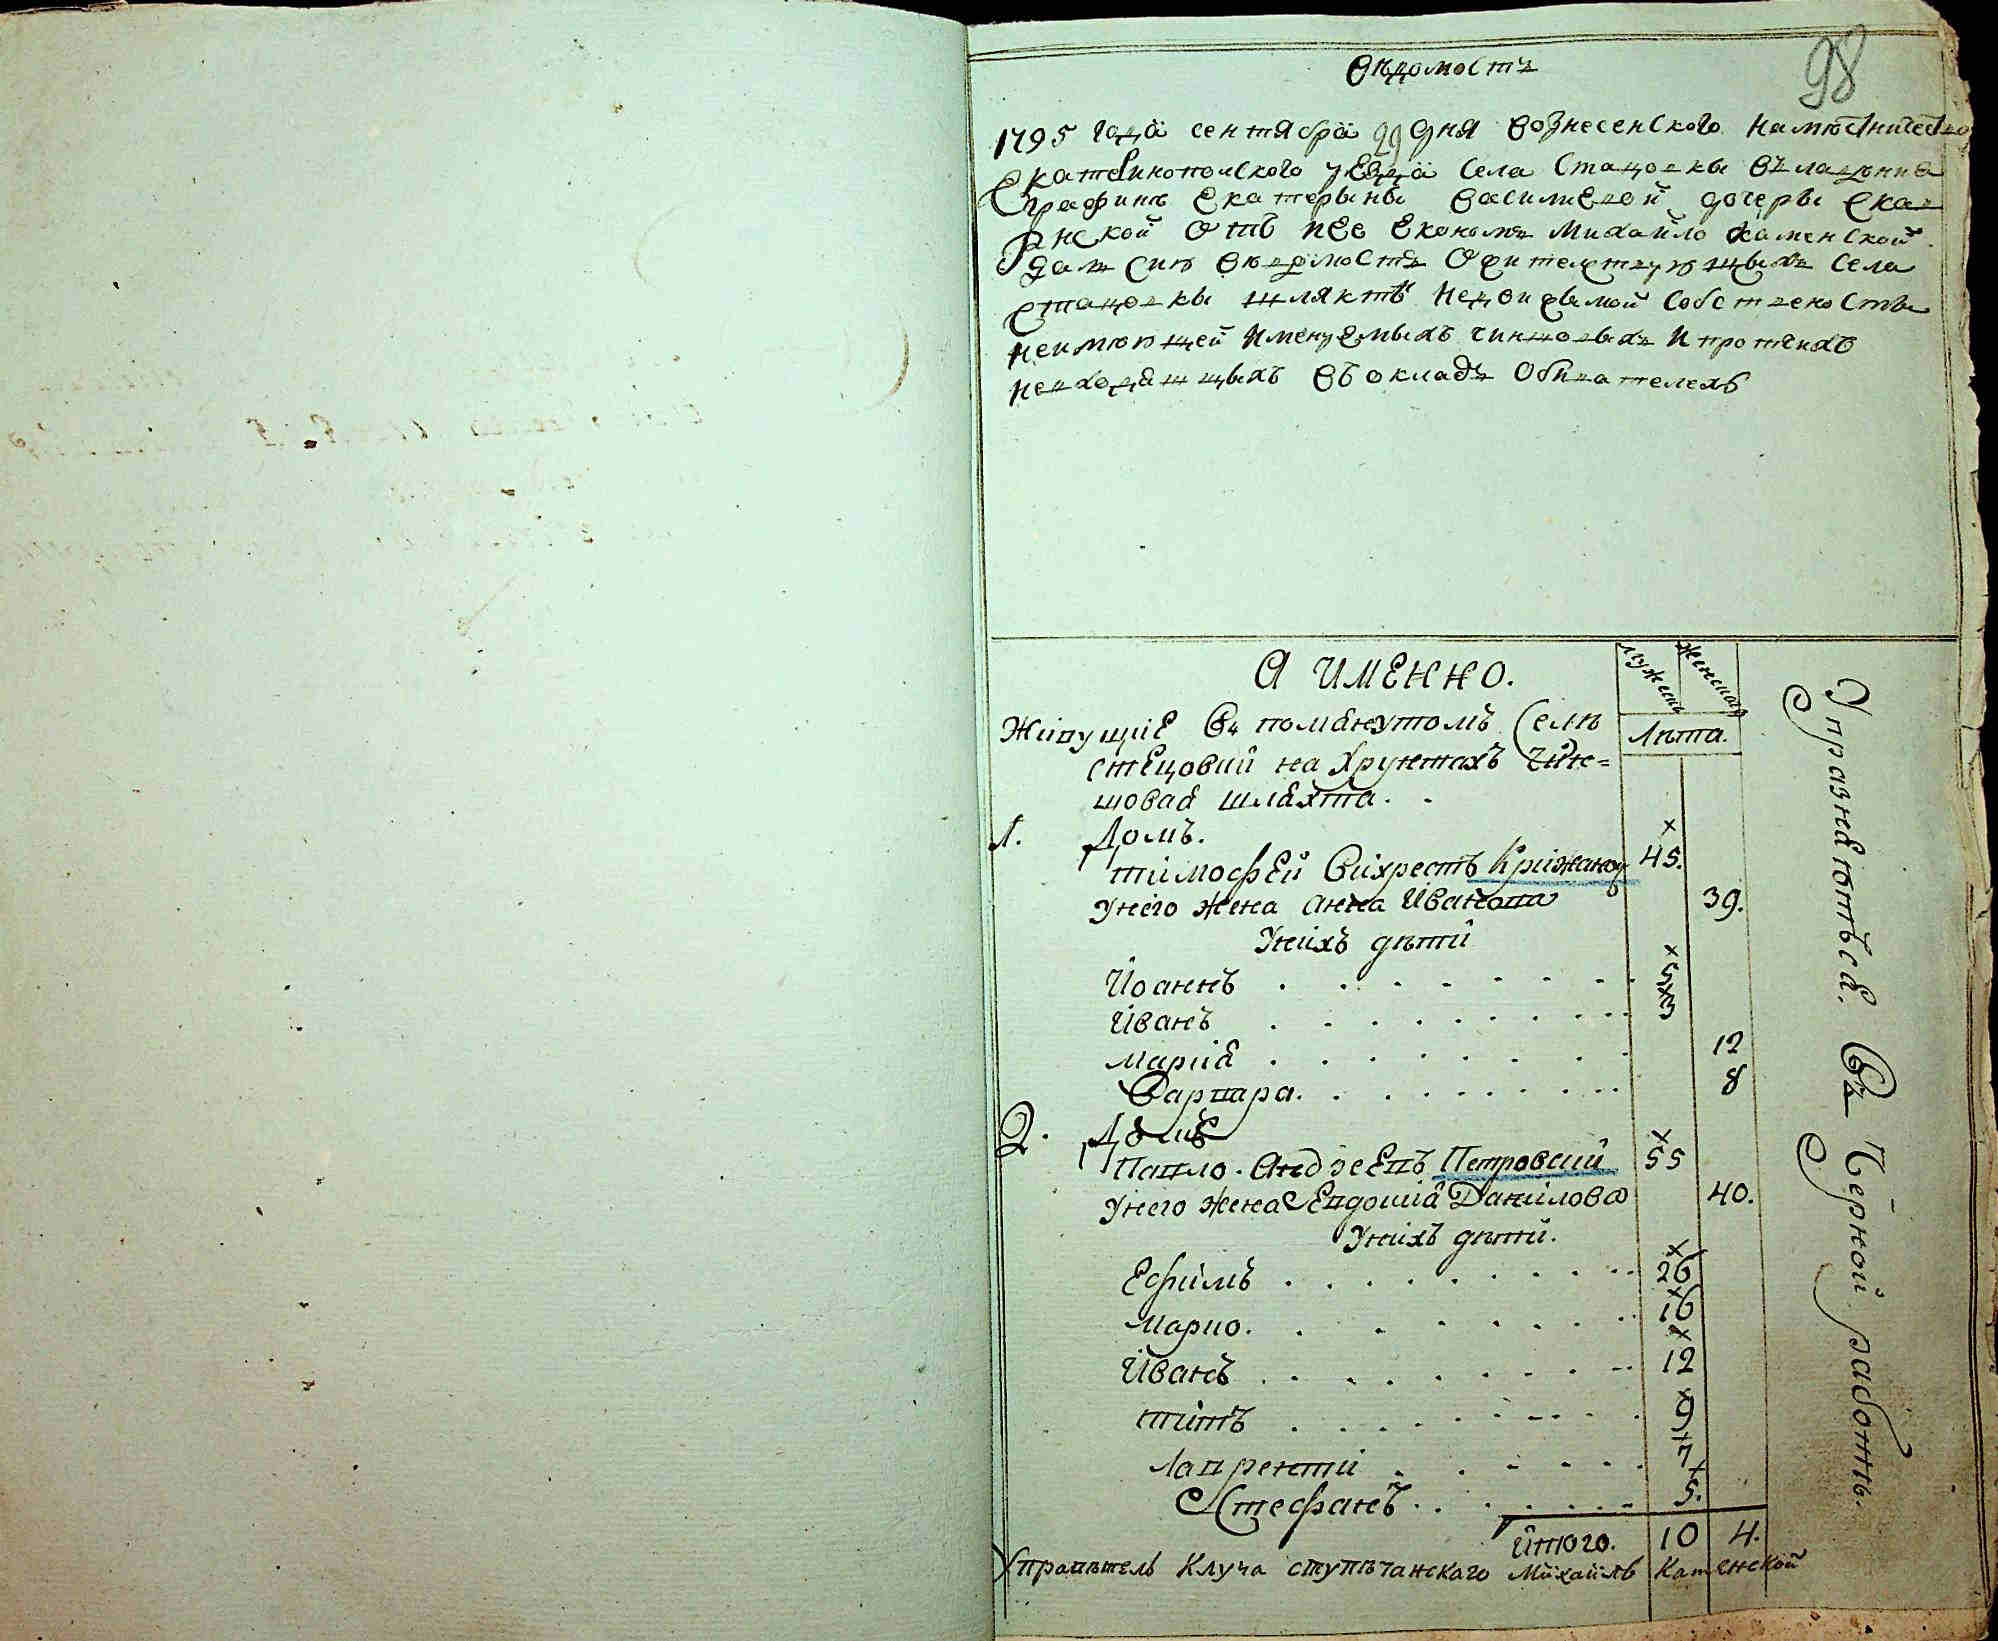 98
Вѣдомость
1795 года сентября 29 дня Вознесенского намѣстничества
Екатеринопольского уезда села Стацовки владѣния
Графинѣ Екатерыны Васильевой дочеры Скав-
ронской отъ нее Економъ Михайло Каменской
далъ сию вѣдомость о жителствующыхъ села
Стацовки шляхтѣ недвижымой собственосты
неимѣющей именуемыхъ чиншовыхъ и протчихъ
невходящщыхъ въ окладъ обывателехъ
А ИМЕННО.
мужеска
женска
Лѣта.
Живущие въ помянутомъ Селѣ
стецовкй на хрунтахъ чин=
шовая шляхта.
1. Домъ.
тимофей Вихрестъ Крижанов 45.
Унего жена анна Иванова 39.
Унихъ дѣти
Иоаннъ 5
Иванъ 3
Мария 12
Варвара. 8
2. Домъ
Павло. Андзеевъ Петровский 55
Унего жена Евдошия Данилова 40.
Унихъ дѣти.
Ефимъ 26
Марко. 16
Иванъ 12
титъ 9
Лавренти 7
Стефанъ 5.
Итого. 10 4.
Управитель Ключа ступѣчанскаго Михаилъ Каменской
Упражняютъся. Въ Черной работѣ.